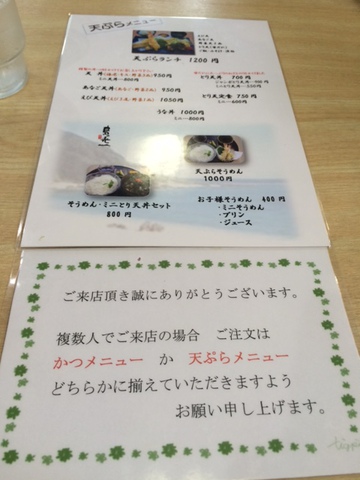 天ぷらメニュー
天ぷらランチ 1200円
950円
ミニ天丼 - 800円
あなご天丼 950円
えび天丼 1050円
うな丼 1000円
ミニ - 800円
とり天丼 700円
とり天定食 750円
ミニ - 600円
天ぷらそうめん
1000円
そうめん・ミニとり天丼セット
800円
お子様そうめん 400円
・ミニそうめん
・プリン
・ジュース
ご来店頂き誠にありがとうございます。
複数人でご来店の場合 ご注文は
かつメニュー か 天ぷらメニュー
どちらかに揃えていただきますよう
お願い申し上げます。